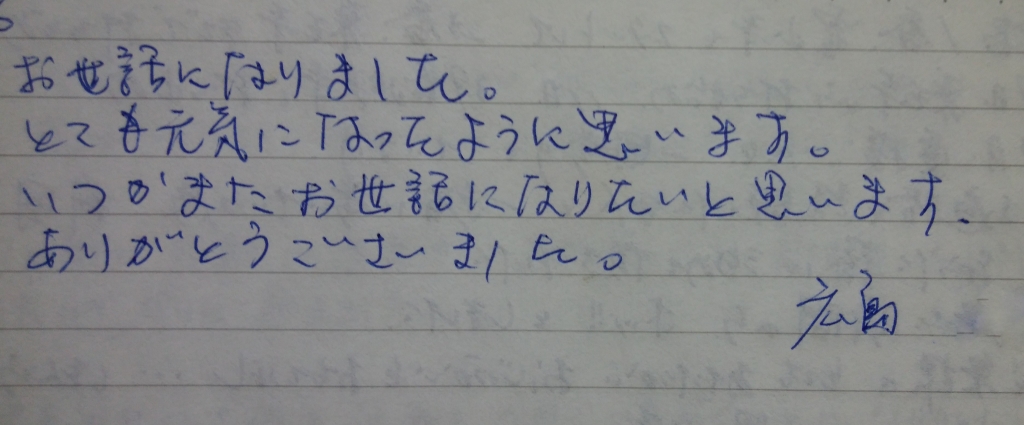 お世話になりました。
とても元気になったように思います。
いつかまたお世話になりたいと思います。
ありがとうございました。